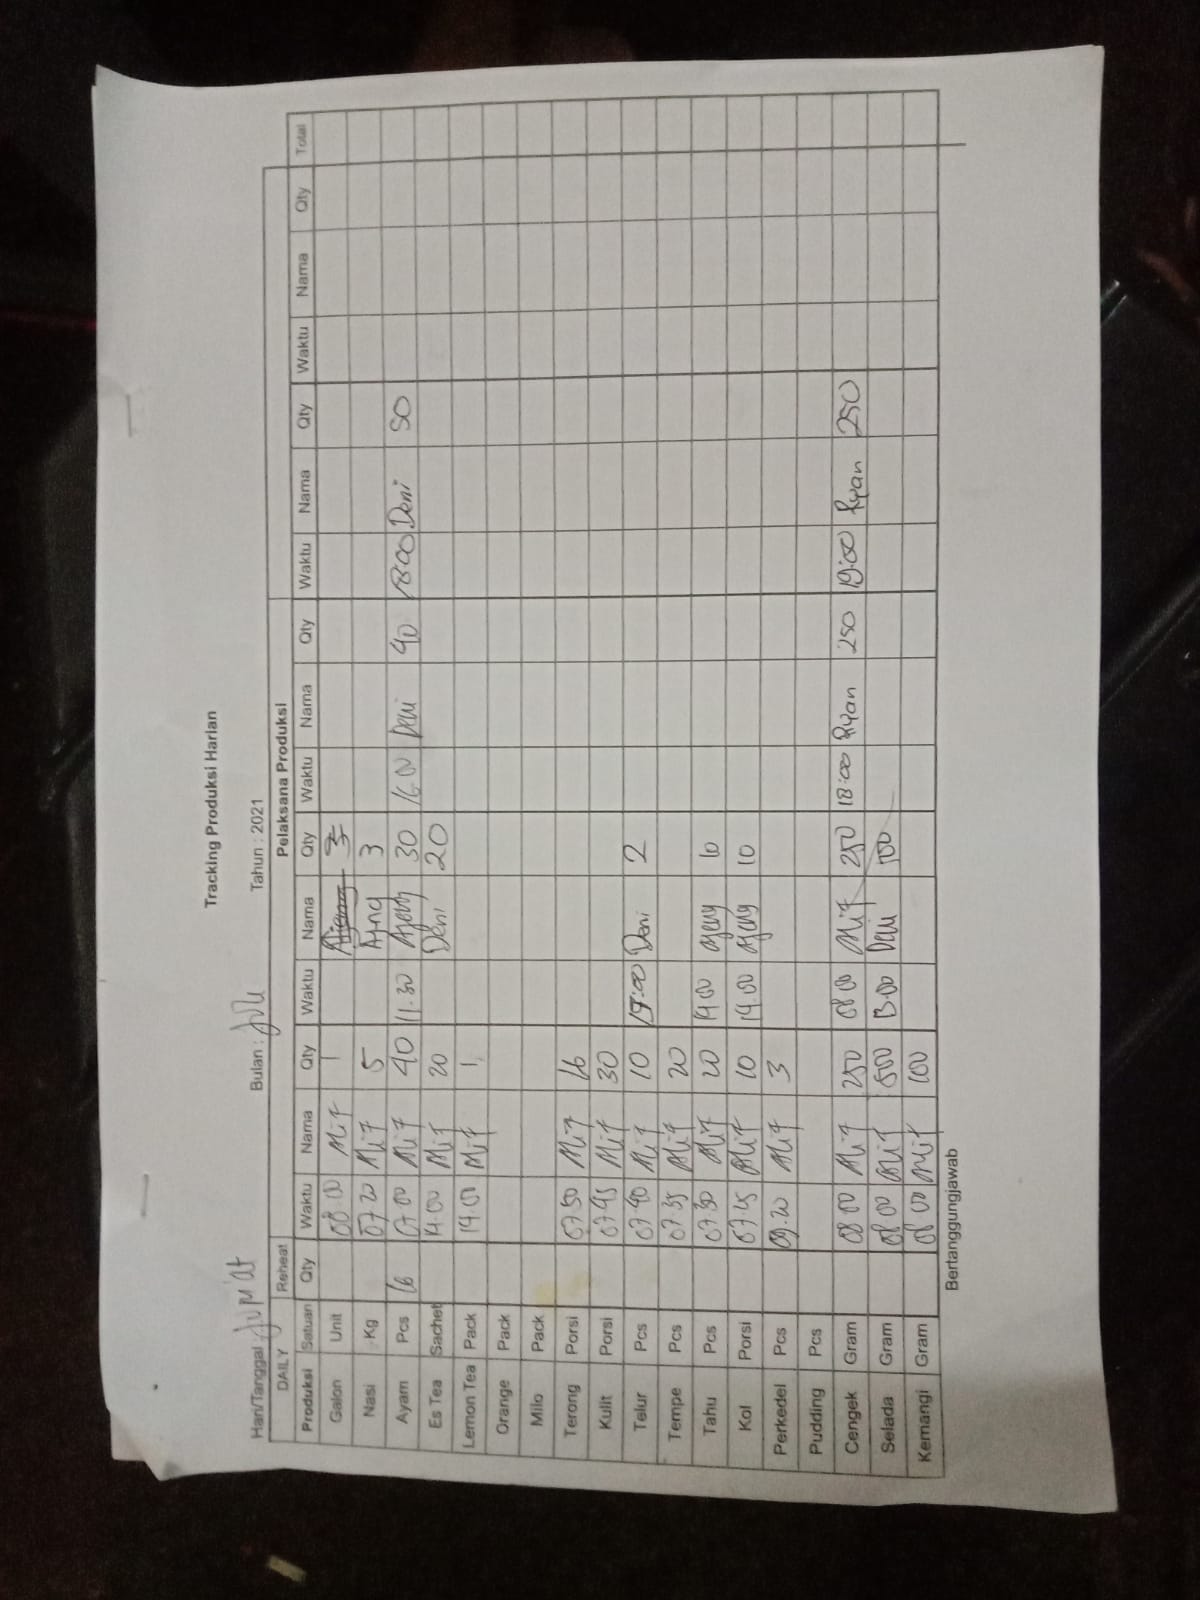 Tracking Produksi Harian
Hari/Tanggal : Jum'at Bulan : Juli Tahun : 2021
DAILY Reheat Pelaksana Produksi
Produksi Satuan Qty Waktu Nama Qty Waktu Nama Qty Waktu Nama Qty Waktu Nama Qty Waktu Nama Qty Total
Galon Unit 08 00 Alif 1
Nasi Kg 07 20 Alif 5 Ajeng 3
Ayam Pcs 16 07 00 Alif 40 11.30 Ajeng 30 16 00 Deni 40 18:00 Deni 50
Es Tea Sachet 14.00 Alif 20 Deni 20
Lemon Tea Pack 14.00 Alif 1
Orange Pack
Milo Pack
Terong Porsi 07.50 Alif 16
Kulit Porsi 07.45 Alif 30
Telur Pcs 07.40 Alif 10 Deni 2
Tempe Pcs 07.35 Alif 20
Tahu Pcs 07.30 Alif 20 14.00 Ajeng 10
Kol Porsi Alif 10 14.00 Ajeng 10
Perkedel Pcs 09.20 Alif 3
Pudding Pcs
Cengek Gram 08 00 Alif 250 08 00 Alif 250 18:00 Ryan 250 19:00 Ryan 250
Selada Gram 08 00 Alif 500 13.00 Deni 100
Kemangi Gram 08 00 Alif 100
Bertanggungjawab